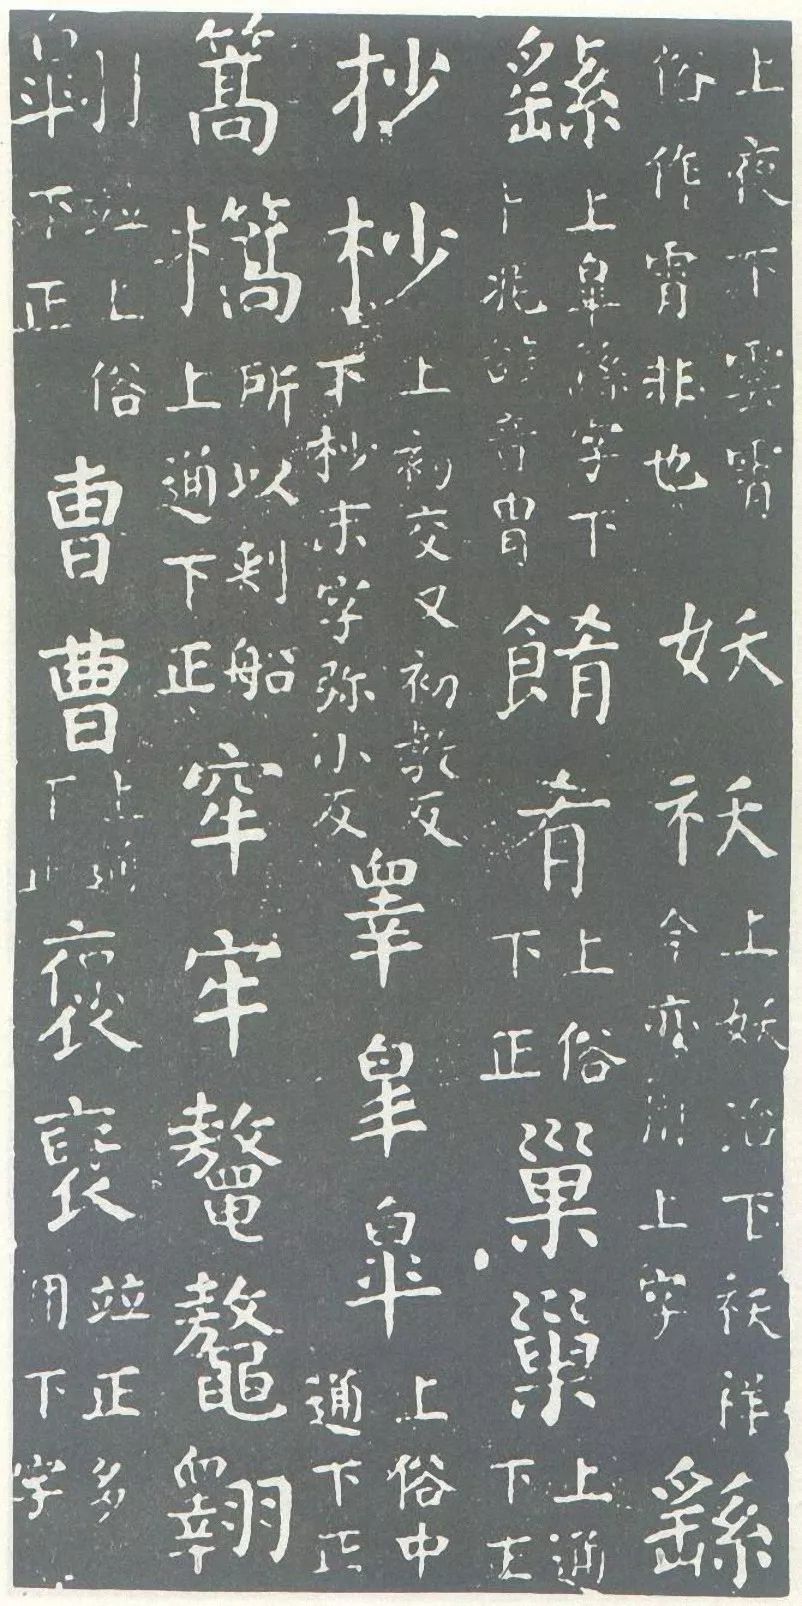 上夜下雲霄俗作霄非也妖祅上妖冶下祅祥今亦用上字繇
繇上皐繇字下卜兆辞音冑餚肴上俗下正巢巢上通下正
抄杪上初交又初教反下杪末字弥小反睾皐皋上俗中通下正
篙㰏所以刺船上通下正窂牢鼇鼇翺
翱並上俗下正曺曹上通下正褒裦並正多用下字